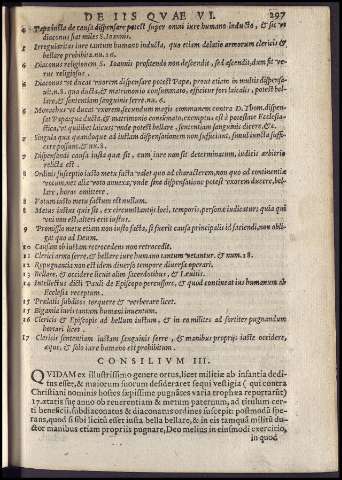 DE IIS QVAE VI. 297
4 Papa iusta de causa dispensare potest super omni iure humano inducto, & sic vt
diaconus fiat miles S. Ioannis.
5 Irregularitas iure tantum humani inducta, qua etiam delatio armorum clericis &
bellare prohibita. nu. 26.
6 Diaconus religionem S. Ioannis profitendo non descendit, sed ascendit, dum fit ve-
rus religiosus.
6 Diaconus vt ducat vxorem dispensare potest Papa, prout etiam in multis dispensa-
uit. n. 9. qua ducta, & matrimonio consummato, efficitur fori laicalis, & potest bel-
lare, & sententiam sanguinis ferre. nu. 6.
6 Monachus vt ducat vxorem, secundum magis communem contra D. Thom. dispen-
sat Papa, quæ ducta, & matrimonio consumato, exemptus est à potestate Ecclesia-
stica, vt quilibet laicus; vnde potest bellare, sententiam sanguinis dicere, &c.
7 Singula qua quandoque ad iustam dispensationem non sufficiant, simul iuncta suffi-
cere possunt. & nu. 8.
7 Dispensandi causa iusta quæ sit, cum iure non sit determinatum, iudicis arbitrio
relicta est.
8 Ordinis susceptio iusto metu facta valet quo ad characterem, non quo ad continentiæ
votum, nec alia vota annexa, vnde sine dispensatione potest vxorem ducere, bel-
lare, horas omittere.
8 Votum iusto metu factum est nullum.
8 Metus iustus quis sit, ex circumstantijs loci, temporis, personæ iudicatur; quia qui
vni non est, alteri erit iustus.
9 Promissio metu etiam non iusto facta, si fuerit causa principalis id faciendi, non obli-
gat quo ad Deum.
10 Causam ob iustam retrocedens non retrocedit.
11 Clerici arma ferre, & bellare iure humano tantum vetantur. & num. 18.
12 Repugnantia non est idem diuerso tempore diuersa operari.
13 Bellare, & occidere licuit olim sacerdotibus, & Leuitis.
14 Intellectus dicti Pauli de Episcopo percussore, & quod continuò ius humanum ab
Ecclesia receptum.
15 Prælatis subditos torquere & verberare licet.
15 Bigamia iuris tantum humani inuentum.
16 Clericis & Episcopis ad bellum iustum, & in eo milites ad fortiter pugnandum
hortari licet.
17 Clericis sententiam iustam sanguinis ferre, & manibus proprijs iuste occidere,
æque, & solo iure humano est prohibitum.
CONSILIVM III.
QVIDAM ex illustrissimo genere ortus, licet militiæ ab infantia dedi-
tus esset, & maiorum suorum desideraret sequi vestigia ( qui contra
Christiani nominis hostes sæpissime pugnātes varia trophæa reportarūt)
17. ætatis suæ anno ob reuerentiam & metum paternum, ad titulum cer-
ti beneficij, subdiaconatus & diaconatus ordines suscepit: postmodū spe-
rans, quod si sibi licitū esset iusta bella bellare, & in eis tamquā militū du-
ctor manibus etiam proprijs pugnare, Deo melius in eiusmodi exercitio,
in quod